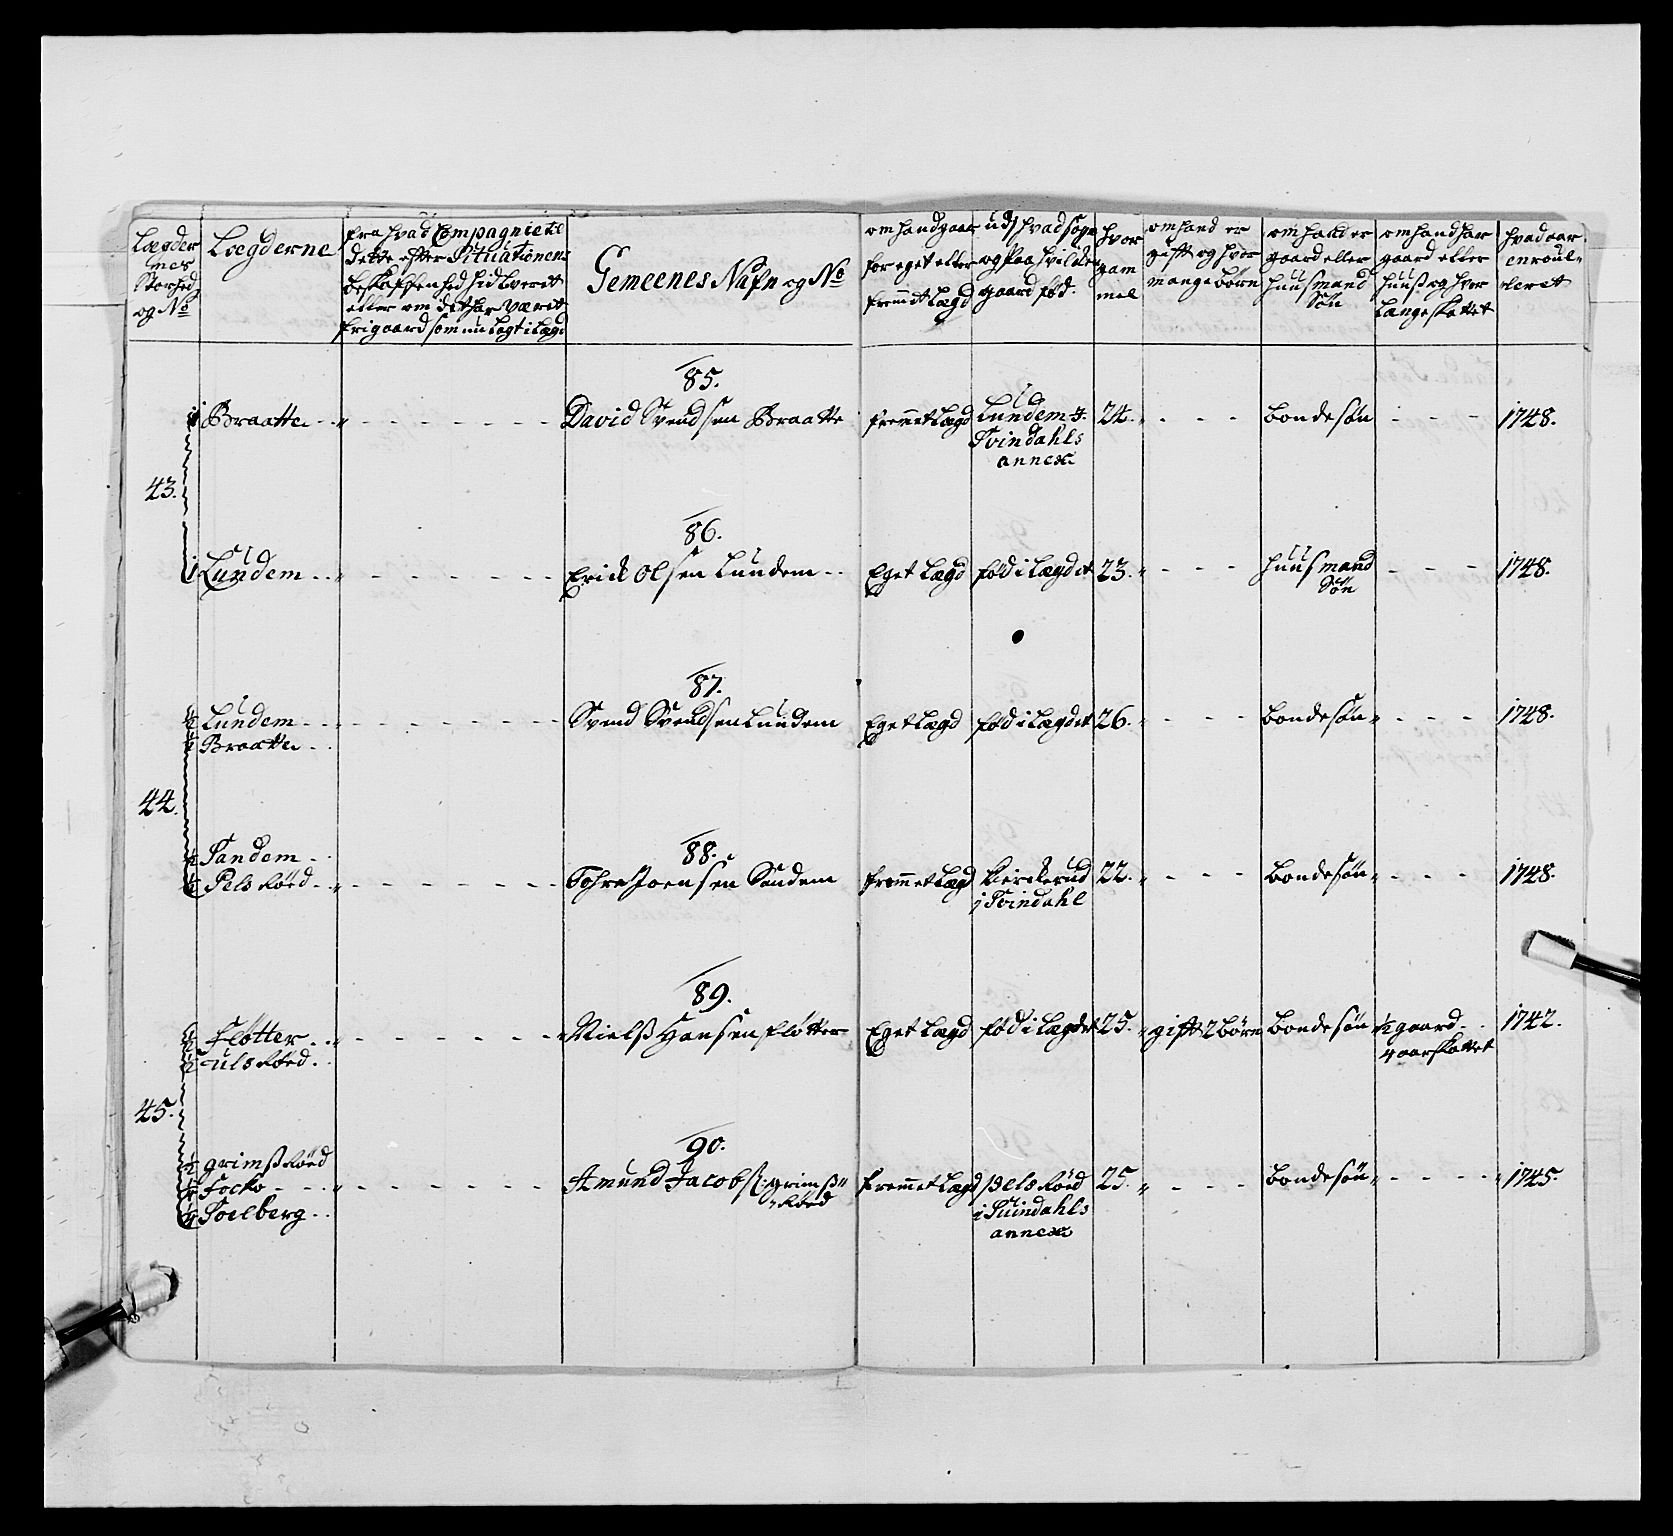 Lægder
nes
Storhed
og No
Lægderne
fra hvad Compagnie et
dette efter Situationens
beskaffenhed hid leveret
eller om det har været
frigaard som nu lagt i Lægd
Gemeenes Nafn og No
om hand gaar
for eget eller
fremdt Lægd
udj hvad Sogn
og paa hvilden
gaard fød.
hvor
gam
mel
om hand er
gift og hvor
mange børn
om hand er
gaard eller
huusmand
Søn
om hand har
gaard eller
huus og hvor
længe skattet
hvad aar
enroul-
leret
85.
1 Braatte
David Svendsen Braatte
fremmet Lægd
Lundem i
Svindahls
annex
24.
bondesøn
1748.
43.
86.
1 Lundem
Erick Olsen Lundem
Eget Lægd
fød i Lægdet
23.
huusmand
Søn
1748.
87.
½ Lundem
½ Braatte
Svend Svendsen Lundem
Eget Lægd
fød i Lægdet
26.
bondesøn
1748.
44.
88.
½ Sandem
½ Pelsrøed
Tohre Joensen Sandem
fremmet Lægd
Kirckerud
i Svindahl
22.
bondesøn
1748.
89.
½ Fløtter
½ Fulsrøed
Nielss Hansen Fløtter
Eget Lægd
fød i Lægdet
25.
gift 2 børn
bondesøn
½ gaard
4 aar skattet
1742.
45.
90.
½ grimssrøed
¼ Focko
¼ Soelberg
Amund Jacobs: grimss
røed
fremmet Lægd
Pelsrøed
i Suindahls
annex
25.
bondesøn
1745.